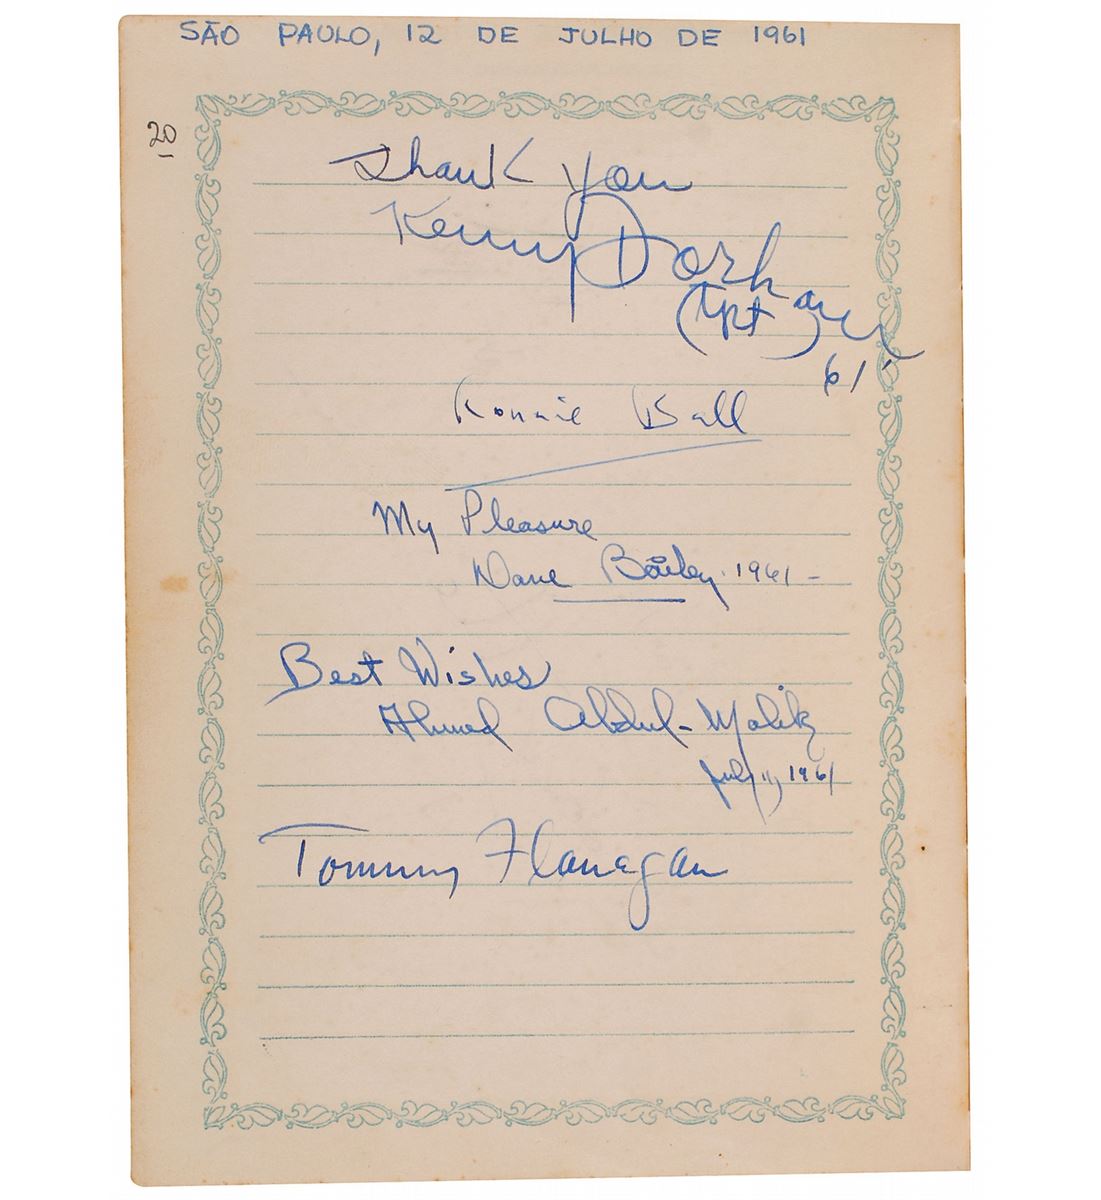 SÃO PAULO, 12 DE JULHO DE 1961
20
Thank you
Kenny Dorham
(Tpt)
61'
Ronnie Ball
My Pleasure
Dave Bailey. 1961 –
Best Wishes
Ahmed Abdul-Malik
July 11, 1961
Tommy Flanagan